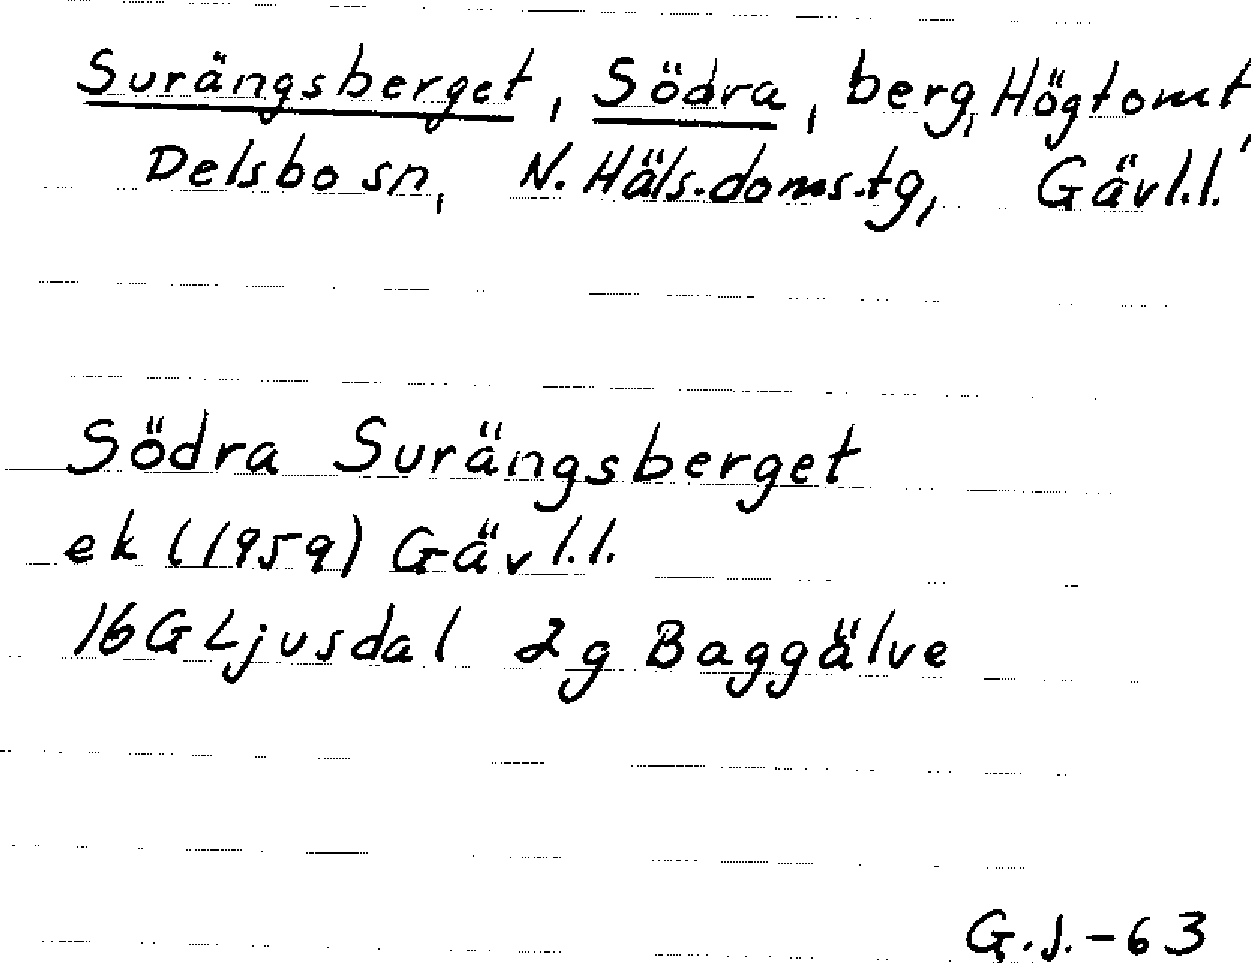 Surängsberget, Södra, berg, Högtomt,
Delsbo sn, N. Häls. doms. tg, Gävl. l.
Södra Surängsberget
ek (1959) Gävl. l.
16G Ljusdal 2g Baggälve
G.J.-63